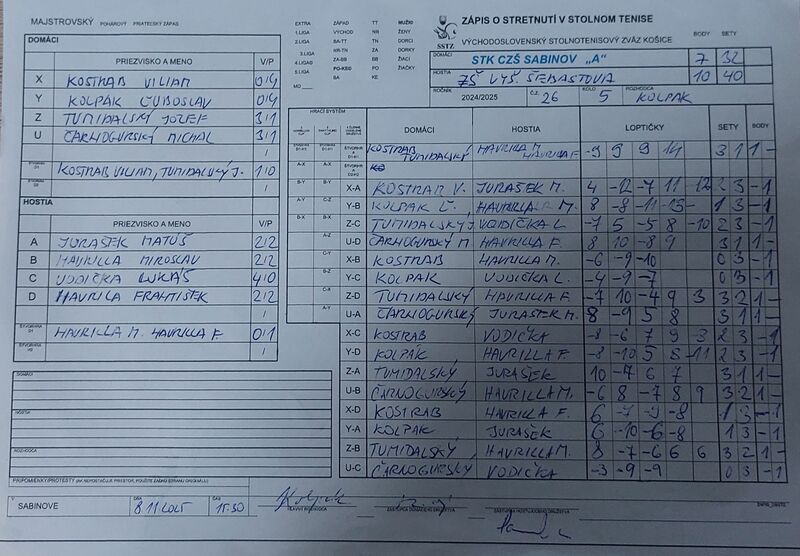 MAJSTROVSKÝ POHÁROVÝ PRIATEĽSKÝ ZÁPAS
EXTRA ZÁPAD TT MUŽI
1.LIGA VÝCHOD NR ŽENY
2.LIGA BA-TT TN DORCI
3.LIGA NR-TN ZA DORKY
4.LIGA ZA-BB BB ŽIACI
5.LIGA PO-KE PO ŽIAČKY
MO BA KE
SSTZ
ZÁPIS O STRETNUTÍ V STOLNOM TENISE
VÝCHODOSLOVENSKÝ STOLNOTENISOVÝ ZVÄZ KOŠICE
BODY SETY
DOMÁCI STK CZŠ SABINOV „A" 7 32
HOSTIA ZŠ VYŠ. ŠEBASTOVÁ 10 40
ROČNÍK 2024/2025 Č.Z. 26 KOLO 5 ROZHODCA KOLPÁK
DOMÁCI
PRIEZVISKO A MENO V/P
X KOSTRAB VILIAM 0/4
Y KOLPÁK ĽUBOSLAV 0/4
Z TUMIDALSKÝ JOZEF 3/1
U ČARNOGURSKÝ MICHAL 3/1
KOSTRAB VILIAM, TUMIDALSKÝ J. 1/0
HOSTIA
PRIEZVISKO A MENO V/P
A JURAŠEK MATÚŠ 2/2
B HAVRILLA MIROSLAV 2/2
C VODIČKA LUKÁŠ 4/0
D HAVRILA FRANTIŠEK 2/2
HAVRILLA M. HAVRILLA F. 0/1
HRACÍ SYSTÉM
DOMÁCI HOSTIA LOPTIČKY SETY BODY
KOSTRAB TUMIDALSKÝ HAVRILLA M. HAVRILLA F. -9 9 9 14 3 1 1 -
X-A KOSTRAB V. JURAŠEK M. 4 -12 -7 11 -12 2 3 - 1
Y-B KOLPÁK Ľ. HAVRILLA M. 8 -8 -11 -13 - 1 3 - 1
Z-C TUMIDALSKÝ J. VODIČKA L. -7 5 -5 8 -10 2 3 - 1
U-D ČARNOGURSKÝ M. HAVRILLA F. 8 10 -8 9 3 1 1 -
X-B KOSTRAB HAVRILLA M. -6 -9 -10 0 3 - 1
Y-C KOLPÁK VODIČKA L. -4 -9 -7 0 3 - 1
Z-D TUMIDALSKÝ HAVRILLA F. -7 10 -4 9 3 3 2 1 -
U-A ČARNOGURSKÝ JURAŠEK M. 8 -9 5 8 3 1 1 -
X-C KOSTRAB VODIČKA -8 -6 7 9 -3 2 3 - 1
Y-D KOLPÁK HAVRILLA F. -8 -10 5 8 -11 2 3 - 1
Z-A TUMIDALSKÝ JURAŠEK 10 -4 6 7 3 1 1 -
U-B ČARNOGURSKÝ HAVRILLA M. -6 8 -7 8 9 3 2 1 -
X-D KOSTRAB HAVRILLA F. 6 -7 -9 -8 1 3 - 1
Y-A KOLPÁK JURAŠEK 6 -10 -6 -8 1 3 - 1
Z-B TUMIDALSKÝ HAVRILLA M. 8 -7 -6 6 6 3 2 1 -
U-C ČARNOGURSKÝ VODIČKA -3 -9 -9 0 3 - 1
DOMÁCI
HOSTIA
ROZHODCA
PRIPOMIENKY/PROTESTY (AK NEPOSTAČUJE PRIESTOR, POUŽITE ZADNÚ STRANU ORIGINÁLU)
V SABINOVE DŇA 8.11.2025 ČAS 15.30
HLAVNÝ ROZHODCA ZÁSTUPCA DOMÁCEHO DRUŽSTVA ZÁSTUPCA HOSŤUJÚCEHO DRUŽSTVA